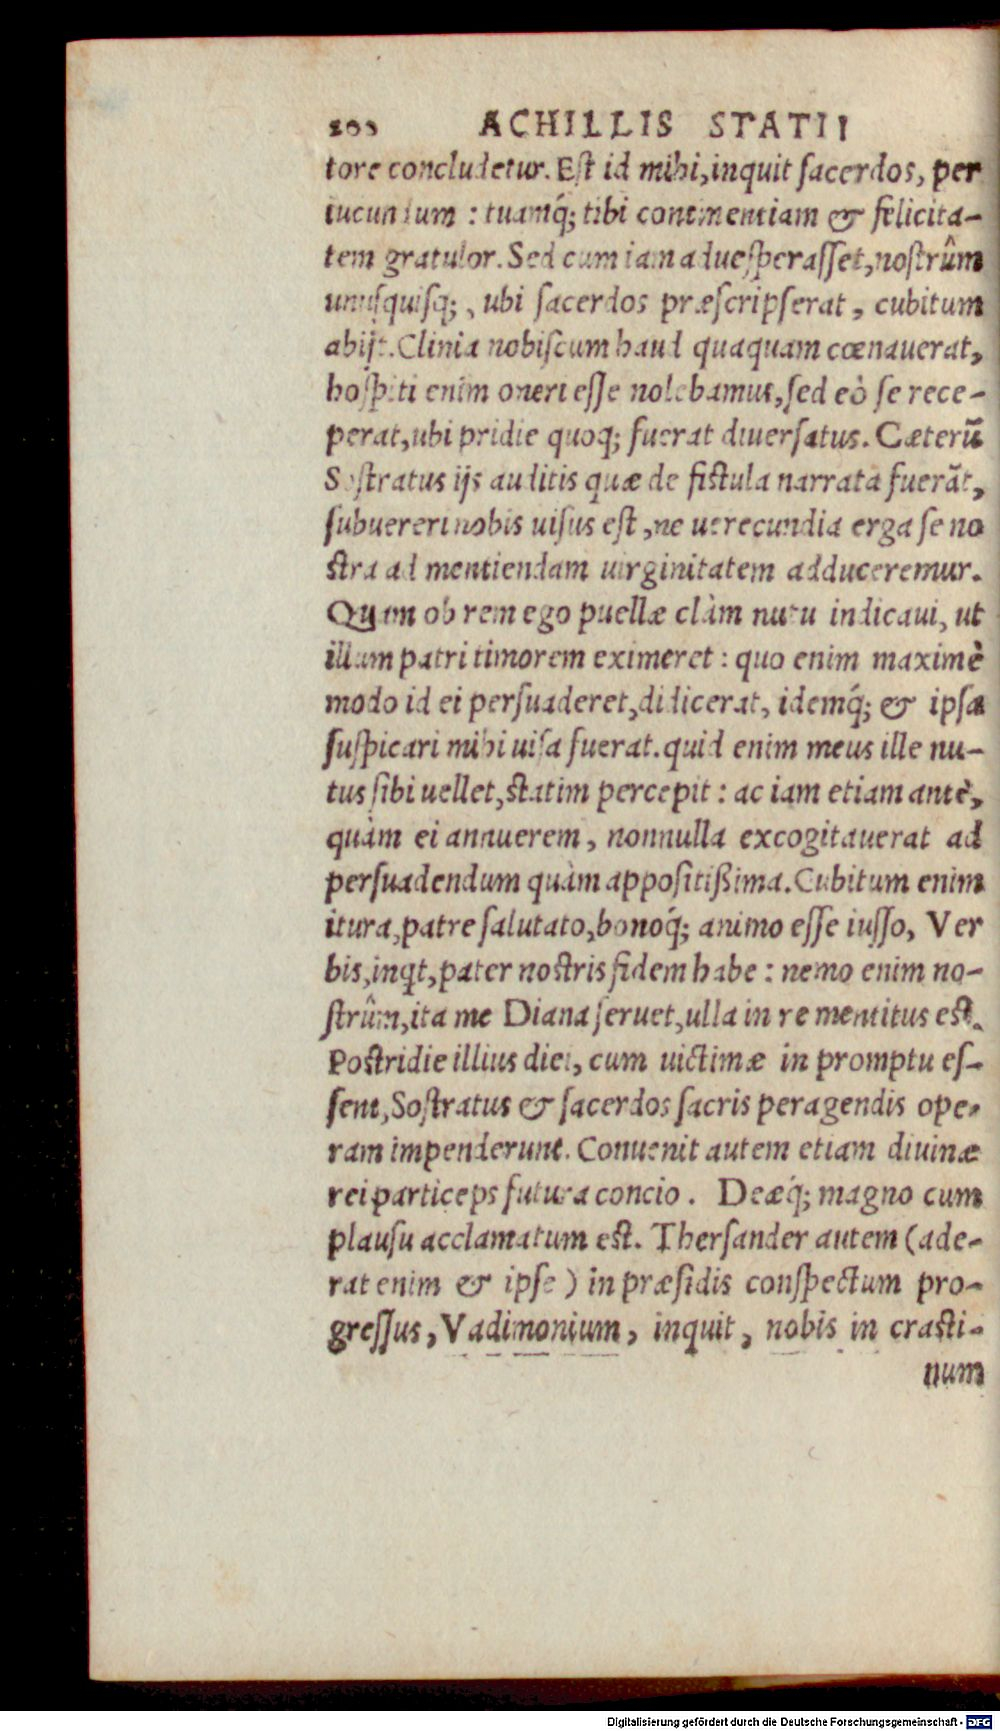 200 ACHILLIS STATII
tore concludetur. Est id mihi, inquit sacerdos, per
iucundum : tuamq́; tibi continentiam & felicita-
tem gratulor. Sed cum iam aduesperasset, nostrûm
unusquisq;, ubi sacerdos præscripserat, cubitum
abijt. Clinia nobiscum haud quaquam cœnauerat,
hospiti enim oneri esse nolebamus, sed eò se rece-
perat, ubi pridie quoq; fuerat diuersatus. Cæterũ
Sostratus ijs auditis quæ de fistula narrata fuerãt,
subuereri nobis uisus est, ne uerecundia erga se no
stra ad mentiendam uirginitatem adduceremur.
Quam ob rem ego puellæ clàm nutu indicaui, ut
illum patri timorem eximeret : quo enim maximè
modo id ei persuaderet, didicerat, idemq́; & ipsa
suspicari mihi uisa fuerat. quid enim meus ille nu-
tus sibi uellet, statim percepit : ac iam etiam antè,
quàm ei annuerem, nonnulla excogitauerat ad
persuadendum quàm appositißima. Cubitum enim
itura, patre salutato, bonoq́; animo esse iusso, Ver
bis, inqt, pater nostris fidem habe : nemo enim no-
strûm, ita me Diana seruet, ulla in re mentitus est.
Postridie illius diei, cum uictimæ in promptu es-
sent, Sostratus & sacerdos sacris peragendis ope-
ram impenderunt. Conuenit autem etiam diuinæ
rei particeps futura concio. Deæq́; magno cum
plausu acclamatum est. Thersander autem (ade-
rat enim & ipse) in præsidis conspectum pro-
gressus, Vadimonium, inquit, nobis in crasti-
num
Digitalisierung gefördert durch die Deutsche Forschungsgemeinschaft - DFG